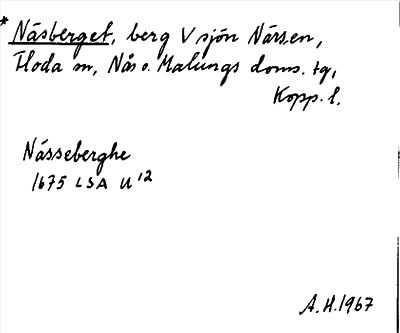 * Näsberget, berg V sjön Närsen,
Floda sn, Nås o. Malungs doms. tg,
Kopp. l.
Nässeberghe
1675 LSA U 12
A.H.1967